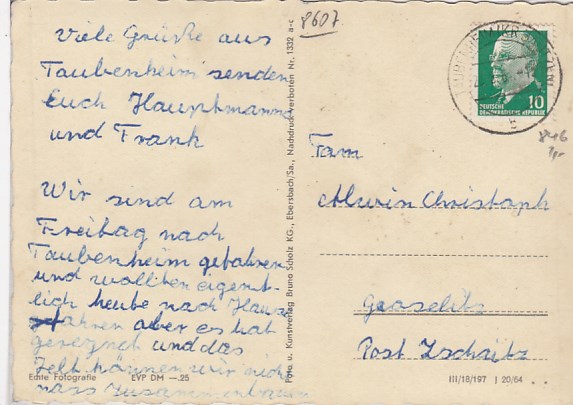 8607
Viele Grüße aus
Taubenheim senden
Euch Hauptmanns
und Frank
Wir sind am
Freitag nach
Taubenheim gefahren
und wollten eigent-
lich heute nach Hause
fahren aber es hat
geregnet und das
Zelt können wir nicht
nass zusammenbauen
Echte Fotografie EVP DM —.25
Foto u. Kunstverlag Bruno Scholz KG., Ebersbach/Sa., Nachdruck verboten Nr. 1332 a-c
DEUTSCHE
DEMOKRATISCHE REPUBLIK
10
Fam
Alwin Christoph
Gaoselitz
Post Zschaitz
III/18/197 J 20/64